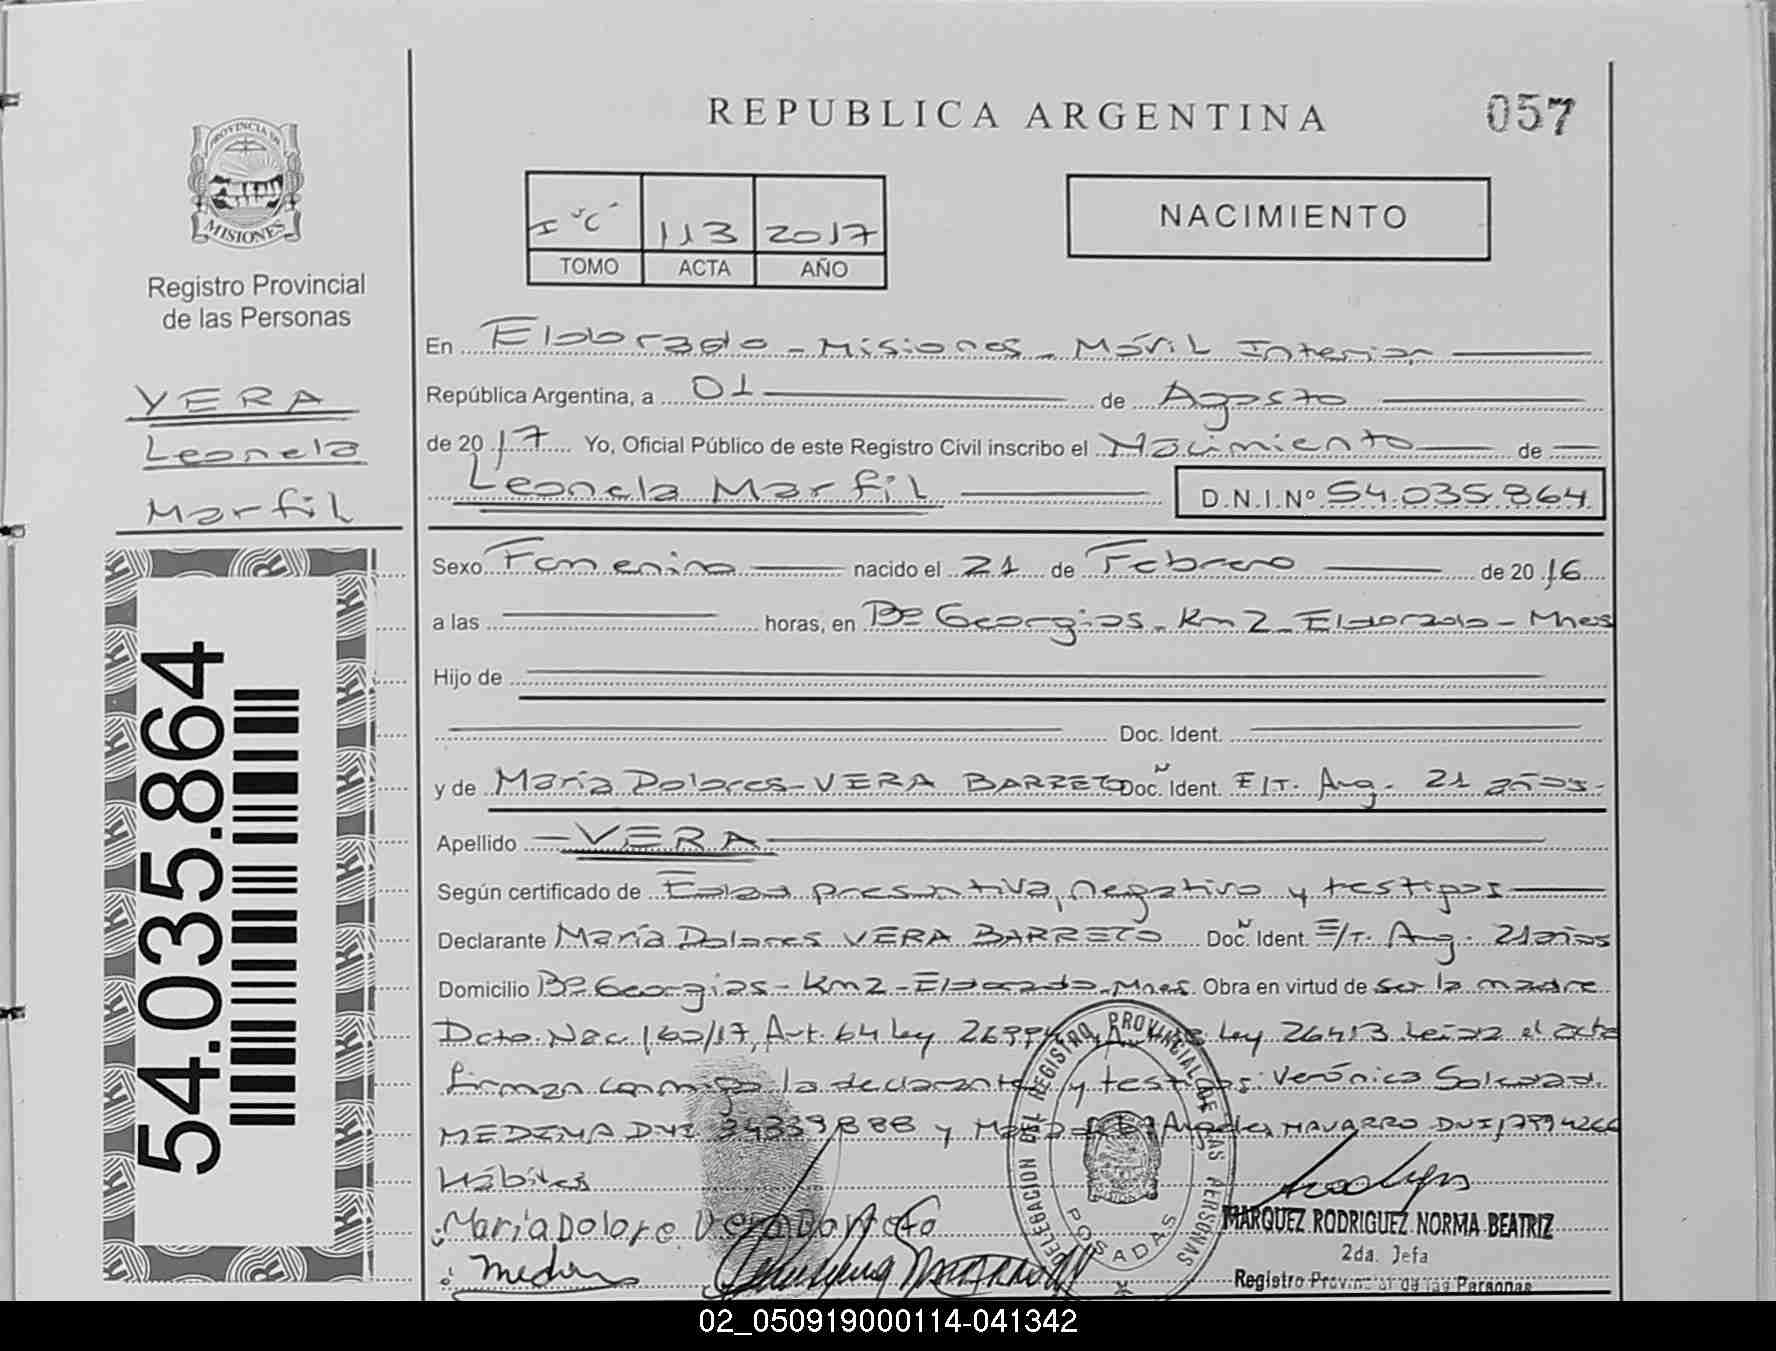 REPUBLICA ARGENTINA
057
PROVINCIA DE
MISIONES
Registro Provincial
de las Personas
I "C" 113 2017
TOMO ACTA AÑO
NACIMIENTO
VERA
Leonela
Marfil
En Eldorado - Misiones - Móvil Interior
República Argentina, a 01 de Agosto
de 2017 Yo, Oficial Público de este Registro Civil inscribo el Nacimiento de
Leonela Marfil D.N.I.Nº 54.035.864
Sexo Femenino nacido el 21 de Febrero de 2016
a las horas, en Bº Georgias - Km 2 - Eldorado - Mnes
Hijo de
Doc. Ident.
y de María Dolores VERA BARRETO Doc. Ident. E/T. Arg. 21 años.
Apellido VERA
Según certificado de Edad presuntiva, negativo y testigos
Declarante María Dolores VERA BARRETO Doc. Ident. E/T. Arg. 21 años
Domicilio Bº Georgias - Km 2 - Eldorado - Mnes. Obra en virtud de ser la madre
Dcto. Nac. 160/17, Art. 64 ley Ley 26413. Leída el acta
firman conmigo la declarante y testigos: Verónica Soledad
MEDINA DNI 34339888 y María de los Angeles NAVARRO DNI
Hábiles
María Dolore Vera Barreto
54.035.864
DELEGACION DEL REGISTRO PROVINCIAL DE LAS PERSONAS
POSADAS
MARQUEZ RODRIGUEZ NORMA BEATRIZ
2da. Jefa
Registro Provincial de las Personas
02_050919000114-041342